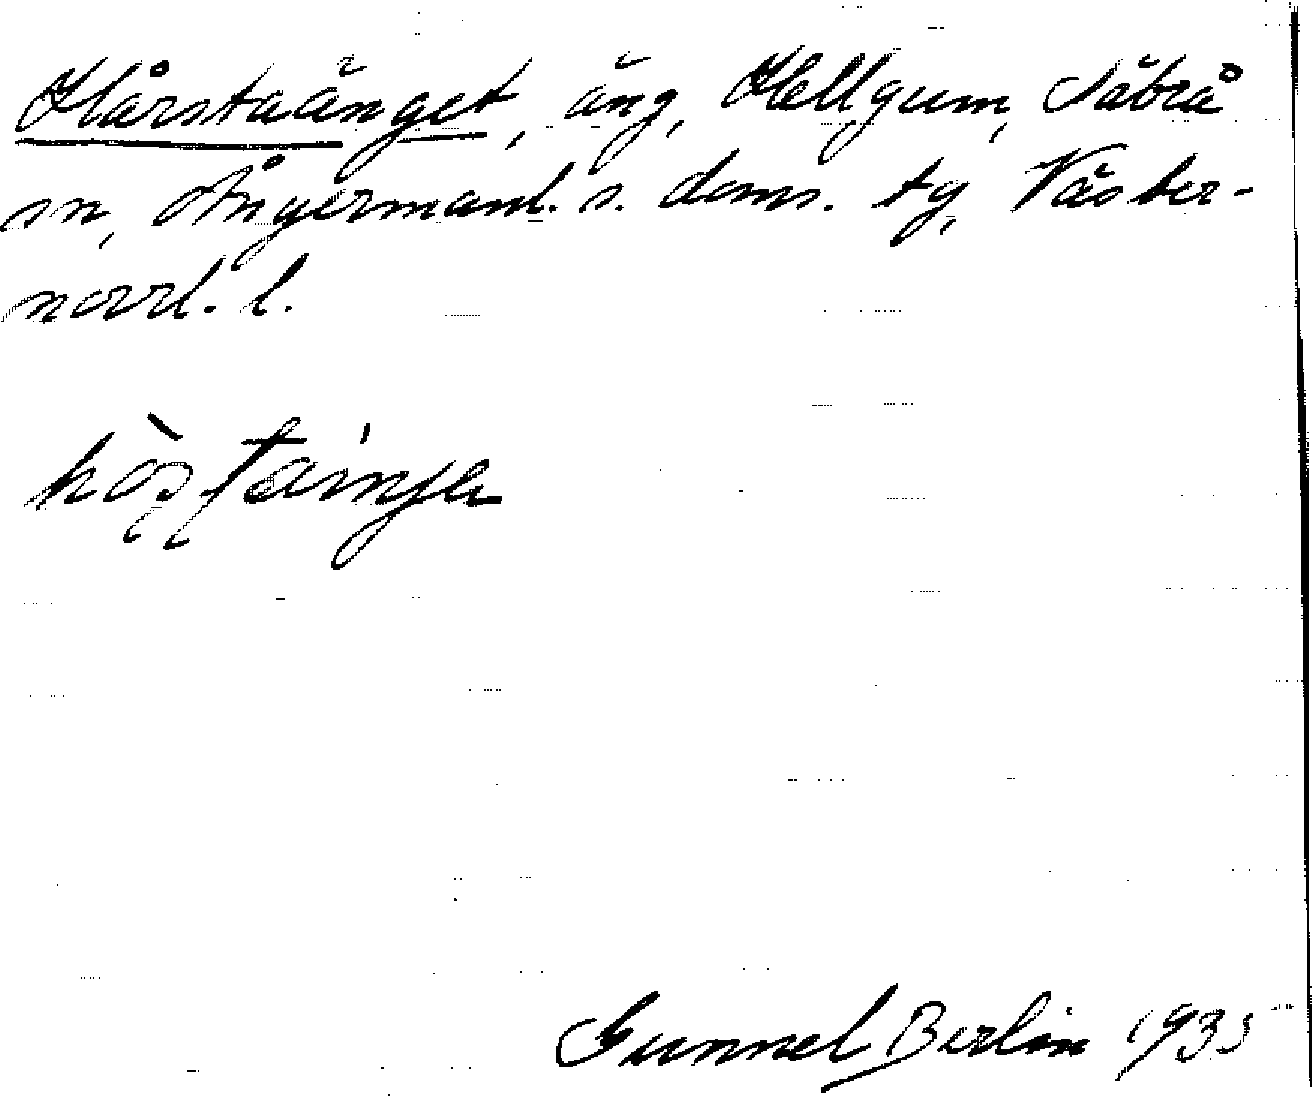 Hårstaänget, äng, Hellgum, Säbrå
sn, Ångermanl. s. doms. tg, Väster-
norrl. l.
Gunnel Berlin 1935